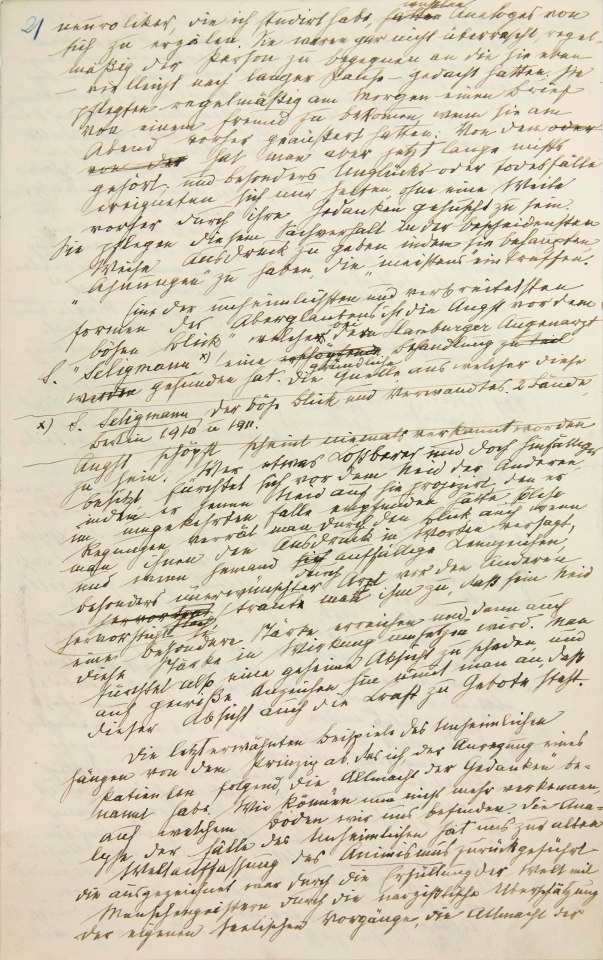 21
neurotiker, die ich studirt habe, wußten Analoges von
sich zu erzälen. Sie waren gar nicht überrascht, regel-
mäßig der Person zu begegnen an die sie eben
– vielleicht nach langer Pause – gedacht hatten; sie
pflegten regelmäßig am Morgen einen Brief
von einem Freund zu bekommen, wenn sie am
Abend vorher geäußert hatten: Von dem oder
von der hat man aber jetzt lange nichts
gehört, und besonders Unglücks oder Todesfälle
ereigneten sich nur selten ohne eine Weile
vorher durch ihre Gedanken gehuscht zu sein.
Sie pflegen diesem Sachverhalt in der bescheidensten
Weise Ausdruck zu geben indem sie behaupten
„Ahnungen" zu haben, die „meistens" eintreffen.
Eine der unheimlichsten und verbreitetsten
Formen des Aberglaubens ist die Angst vor dem
„bösen Blick" welcher bei dem Hamburger Augenarzt
S. Seligmann x) eine gründliche Behandlung
gefunden hat. Die Quelle aus welcher diese
x) S. Seligmann, der böse Blick und Verwandtes. 2 Bände,
Berlin 1910 u 1911.
Angst schöpft scheint niemals verkannt worden
zu sein. Wer etwas Kostbares und doch Hinfälliges
besitzt fürchtet sich vor dem Neid der Anderen,
indem er jenen Neid auf sie projizirt den er
im umgekehrten Falle empfunden hätte. Solche
Regungen verrät man durch den Blick auch wenn
man ihnen den Ausdruck in Worten versagt,
und wenn jemand sich durch auffällige Kennzeichen
besonders unerwünschter Art vor den anderen
hervorsticht, traute man ihm zu, daß sein Neid
eine besondere Stärke erreichen und dann auch
diese Stärke in Wirkung umsetzen wird. Man
fürchtet also eine geheime Absicht zu schaden, und
auf gewiße Anzeichen hin nimt man an, daß
dieser Absicht auch die Kraft zu Gebote steht.
Die letzterwähnten Beispiele des Unheimlichen
hängen von dem Prinzip ab, das ich, der Anregung eines
Patienten folgend, die „Allmacht der Gedanken" be-
nannt habe. Wir können nun nicht mehr verkennen,
auf welchem Boden wir uns befinden. Die Ana-
lyse der Fälle des Unheimlichen hat uns zur alten
Weltauffassung des Animismus zurückgeführt
die ausgezeichnet war durch die Erfüllung der Welt mit
Menschengeistern durch die narzißtische Überschätzung
der eigenen seelischen Vorgänge, die Allmacht der